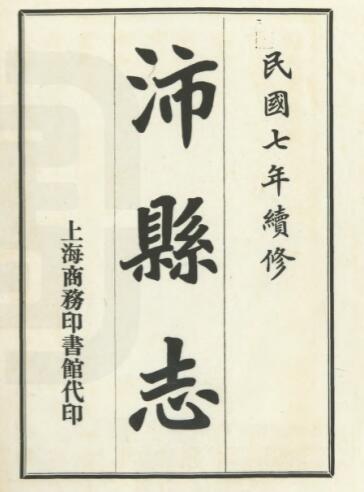 民國七年續修
沛縣志
上海商務印書館代印